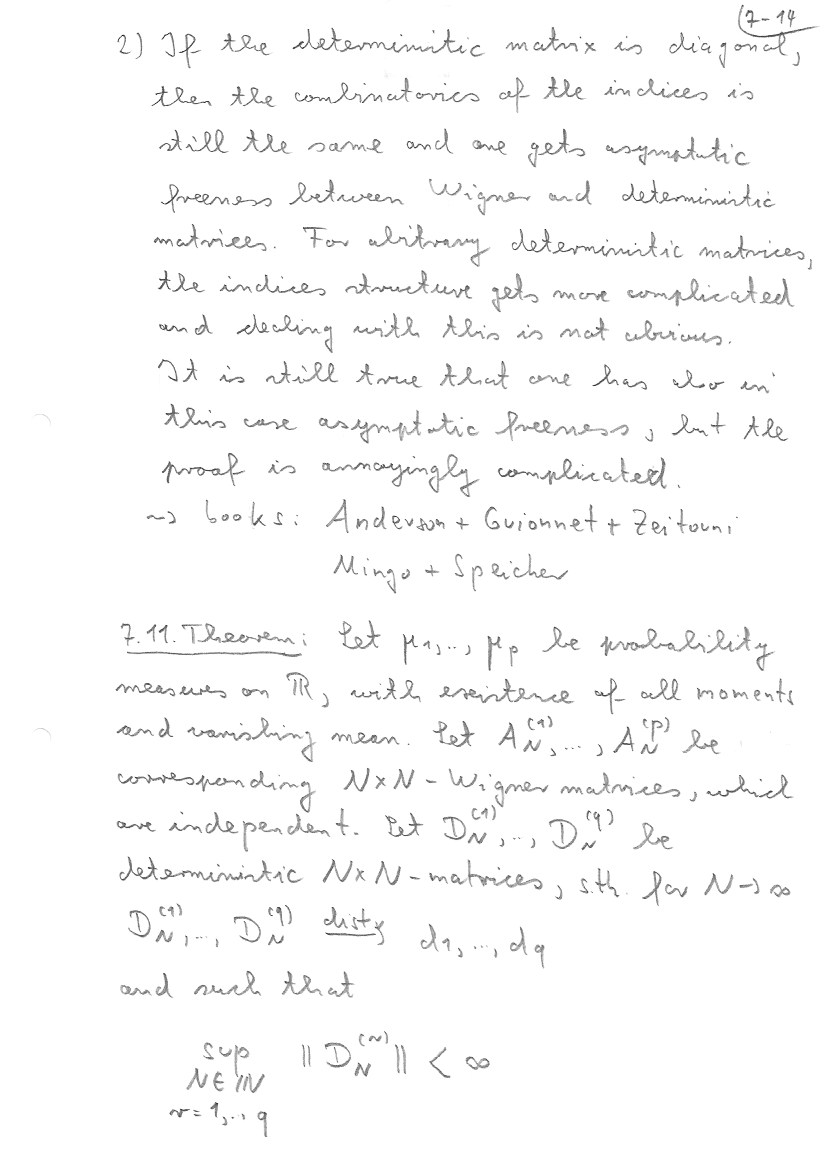 (7-14
2) If the deterministic matrix is diagonal,
then the combinatorics of the indices is
still the same and one gets asymptotic
freeness between Wigner and deterministic
matrices. For arbitrary deterministic matrices,
the indices structure gets more complicated
and dealing with this is not obvious.
It is still true that one has also in
this case asymptotic freeness, but the
proof is annoyingly complicated.
~> books: Anderson + Guionnet + Zeitouni
Mingo + Speicher
7.11. Theorem: Let μ₁,.., μₚ be probability
measures on ℝ, with existence of all moments
and vanishing mean. Let A_N^(1),..., A_N^(p) be
corresponding N×N-Wigner matrices, which
are independent. Let D_N^(1),.., D_N^(q) be
deterministic N×N-matrices, s.th. for N→∞
D_N^(1),.., D_N^(q) distr→ d₁,..., d_q
and such that
sup ‖D_N^(r)‖ < ∞
N∈ℕ
r=1,..q